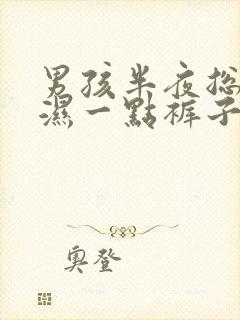 男孩半夜总
濕一點裤子
奥登